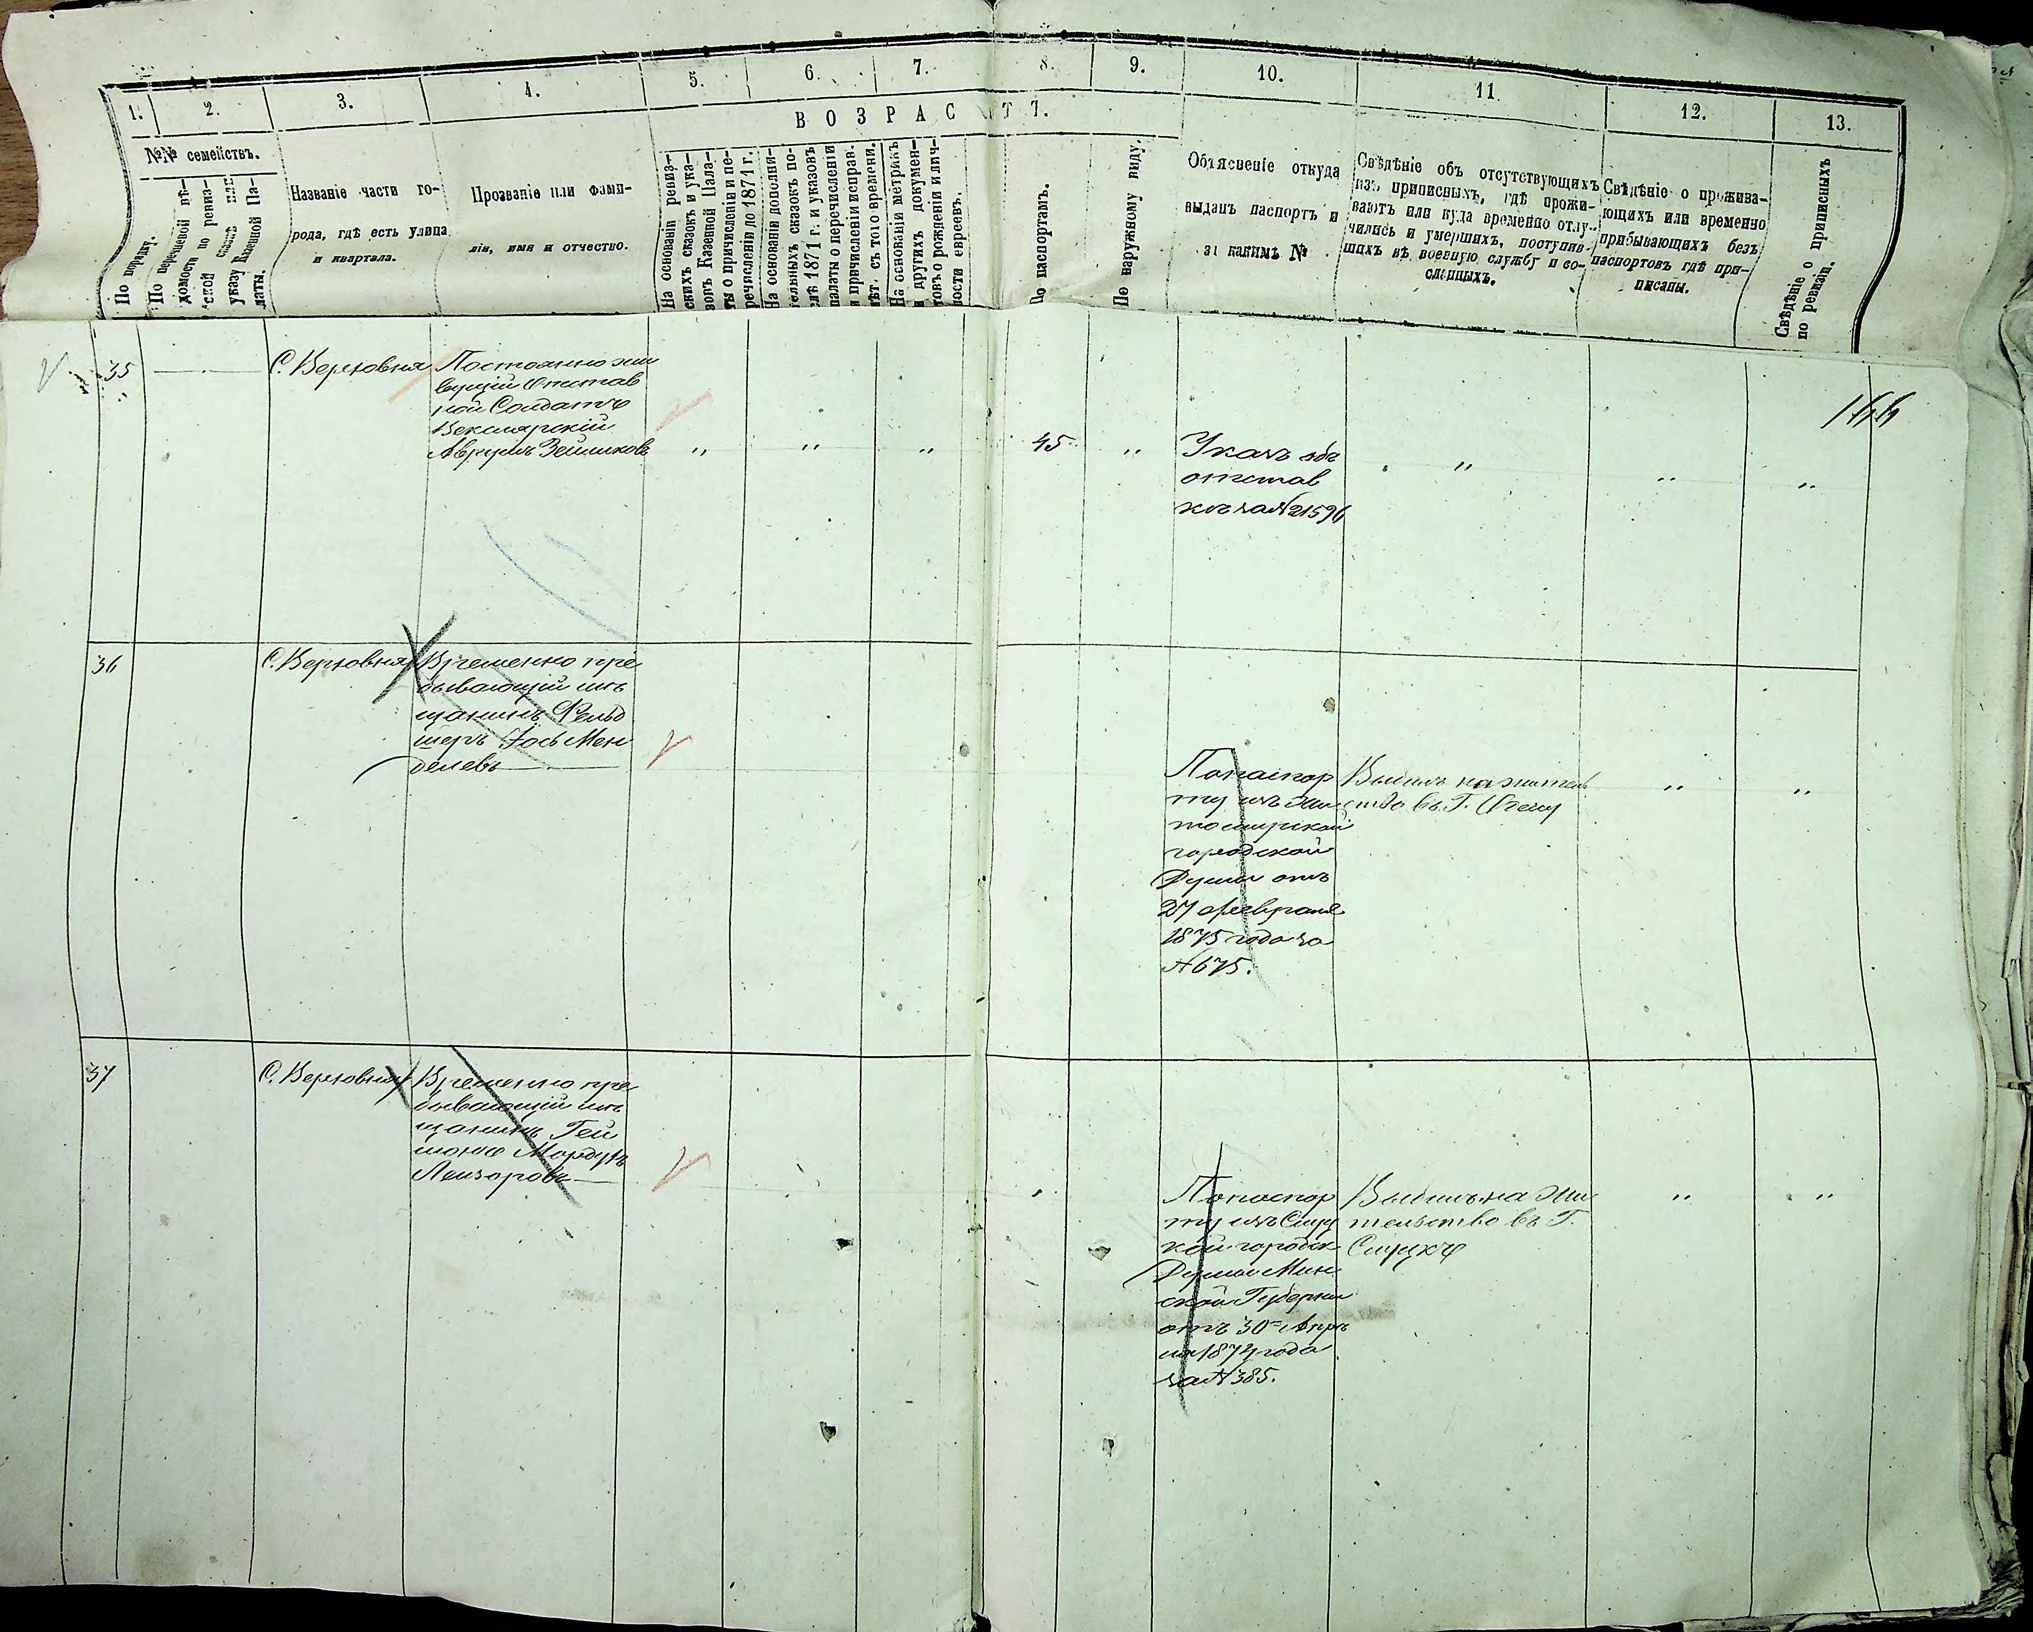 1. 2. 3. 4. 5. 6. 7. 8. 9. 10. 11. 12. 13.
ВОЗРАСТЪ.
№№ семействъ.
По порядку.
По перешевой вѣ-
домости по ревиз-
ской сказкѣ или
указу Казенной Па-
латы.
Названіе части го-
рода, гдѣ есть улица
и квартала.
Прозваніе или фами-
лія, имя и отчество.
На основаніи ревиз-
скихъ сказокъ и ука-
зовъ Казенной Пала-
ты о причисленіи и пе-
речисленіи до 1871 г.
На основаніи дополни-
тельныхъ сказокъ по-
слѣ 1871 г. и указовъ
палаты о перечисленіи
и причисленіи исправ.
лѣт. съ того времени.
На основаніи метрикъ
и другихъ докумен-
товъ о рожденіи и лич-
ности евреевъ.
По паспортамъ.
По наружному виду.
Объясненіе откуда
выданъ паспортъ и
за какимъ №
Свѣдѣніе объ отсутствующихъ
изъ приписныхъ, гдѣ прожи-
ваютъ или куда временно отлу-
чились и умершихъ, поступив-
шихъ въ военную службу и со-
сланныхъ.
Свѣдѣніе о прожива-
ющихъ или временно
прибывающихъ безъ
паспортовъ гдѣ при-
писаны.
Свѣдѣніе о приписныхъ
по ревизіи.
35
С. Верховня
Постоянно жи
вущій Отстав
ной Солдатъ
Векслярскій
Аврумъ Зейликовъ
" " " 45 "
Указъ объ
отстав
кѣ за № 21596
" " "
144
36
С. Верховня
Временно пре
бывающій мѣ
щанинъ Фельд
шеръ Іось Мен
делевъ
По паспор
ту изъ Жи
томирской
городской
Думы отъ
27 февраля
1875 года за
№ 675.
Выбылъ на житель
ство въ Г.
" "
37
С. Верховня
Временно пре
бывающій мѣ
щанинъ Гей
Мордухъ
Лейзоровъ
По паспор
ту изъ Слуц
кой городск
Думы Мин
ской Губерніи
отъ 30 Апрѣ
ля 1874 года
за № 385.
Выбылъ на жи
тельство въ Г.
Слуцкъ
" "